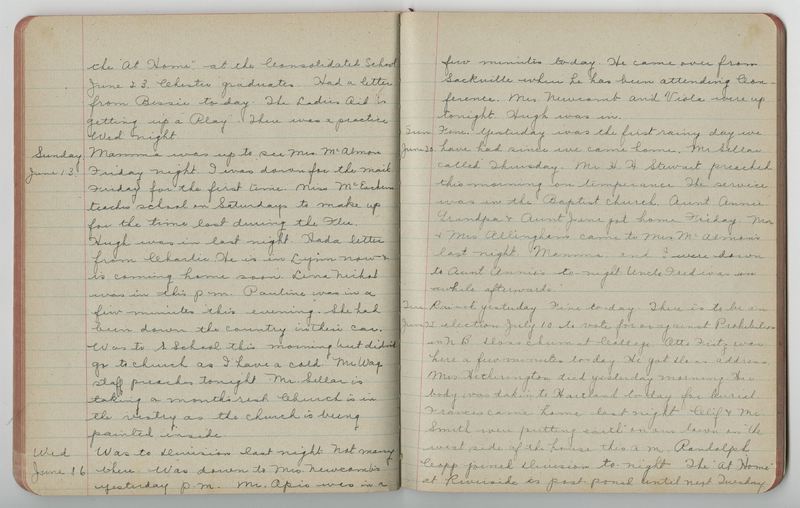 the "At Home" at the Consolidated School
June 23. Chester graduates. Had a letter
from Bessie to day. The Ladies Aid is
getting up a Play. There was a practice
Wed night.
Sunday Mamma was up to see Mrs. McAlmon
June 13 Friday night. I was down for the mail
Friday for the first time. Miss McEachern
teaches school on Saturdays to make up
for the time lost during the Flu.
Hugh was in last night. Had a letter
from Charlie. He is in Lynn now &
is coming home soon. Lena Nichol
was in this p.m. Pauline was in a
few minutes this evening. She had
been down the country in their car.
Was to S School this morning but didn't
go to church as I have a cold. Mr Wag
staff preaches tonight. Mr. Sellar is
taking a months rest. Church is in
the vestry as the church is being
painted inside.
Wed Was to Division last night. Not many
June 16 there. Was down to Mrs Newcomb's
yesterday p.m. Mr. Apis was in a
few minutes today. He came over from
Sackville where he has been attending Con-
ference. Mrs Newcomb and Viola were up
tonight. Hugh was in.
Sun Fine. Yesterday was the first rainy day we
June 20 have had since we came home. Mr Sellar
called Thursday. Mr. H. H. Stewart preached
this morning on temperance. The service
was in the Baptist church. Aunt Annie
Grandpa & Aunt Jane got home Friday. Mr
& Mrs. Allingham came to Mrs McAlmon's
last night. Mamma and I were down
to Aunt Annie's to-night. Uncle Fred was in
awhile afterwards.
Tue Rained yesterday. Fine to day. There is to be an
June 22 election July 10 to vote for or against Prohibition
in N B. chum at College Fritz was
here a few minutes to day. He got address.
Mrs Hetherington died yesterday morning. Her
body was taken to Hartland to day for burial.
Frances came home last night. Clif & Mr
Smith were putting earth on our lawn on the
west side of the house this a.m. Randolph
Crapp joined Division to night. The "At Home"
at Riverside is post poned until next Tuesday